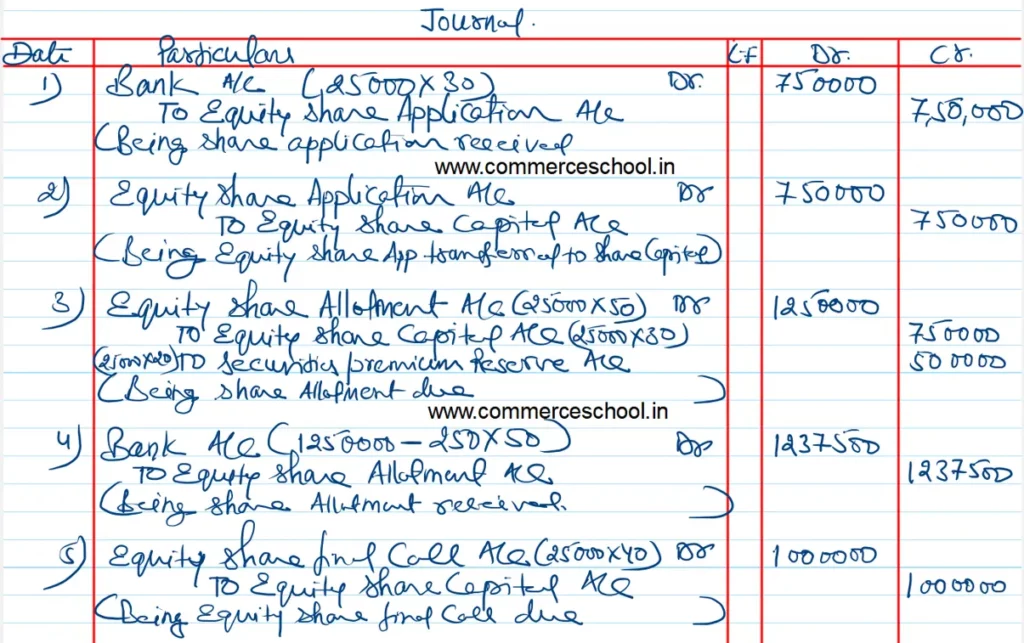 Journal.
Date Particulars LF Dr. Cr.
1) Bank A/C (25000X30) Dr. 750000
To Equity Share Application A/c 7,50,000
(Being share application received
www.commerceschool.in
2) Equity Share Application A/c Dr 750000
To Equity Share Capital A/c 750000
(Being Equity share App transferred to Share Capital)
3) Equity Share Allotment A/c (25000X50) Dr 1250000
To Equity Share Capital A/c (25000X30) 750000
(25000X20) TO Securities premium Reserve A/c 500000
(Being Share Allotment due )
www.commerceschool.in
4) Bank A/c (1250000 - 250X50) Dr 1237500
To Equity Share Allotment A/c 1237500
(Being Share Allotment received. )
5) Equity Share final Call A/c (25000X40) Dr 1000000
To Equity Share Capital A/c 1000000
(Being Equity Share final Call due )